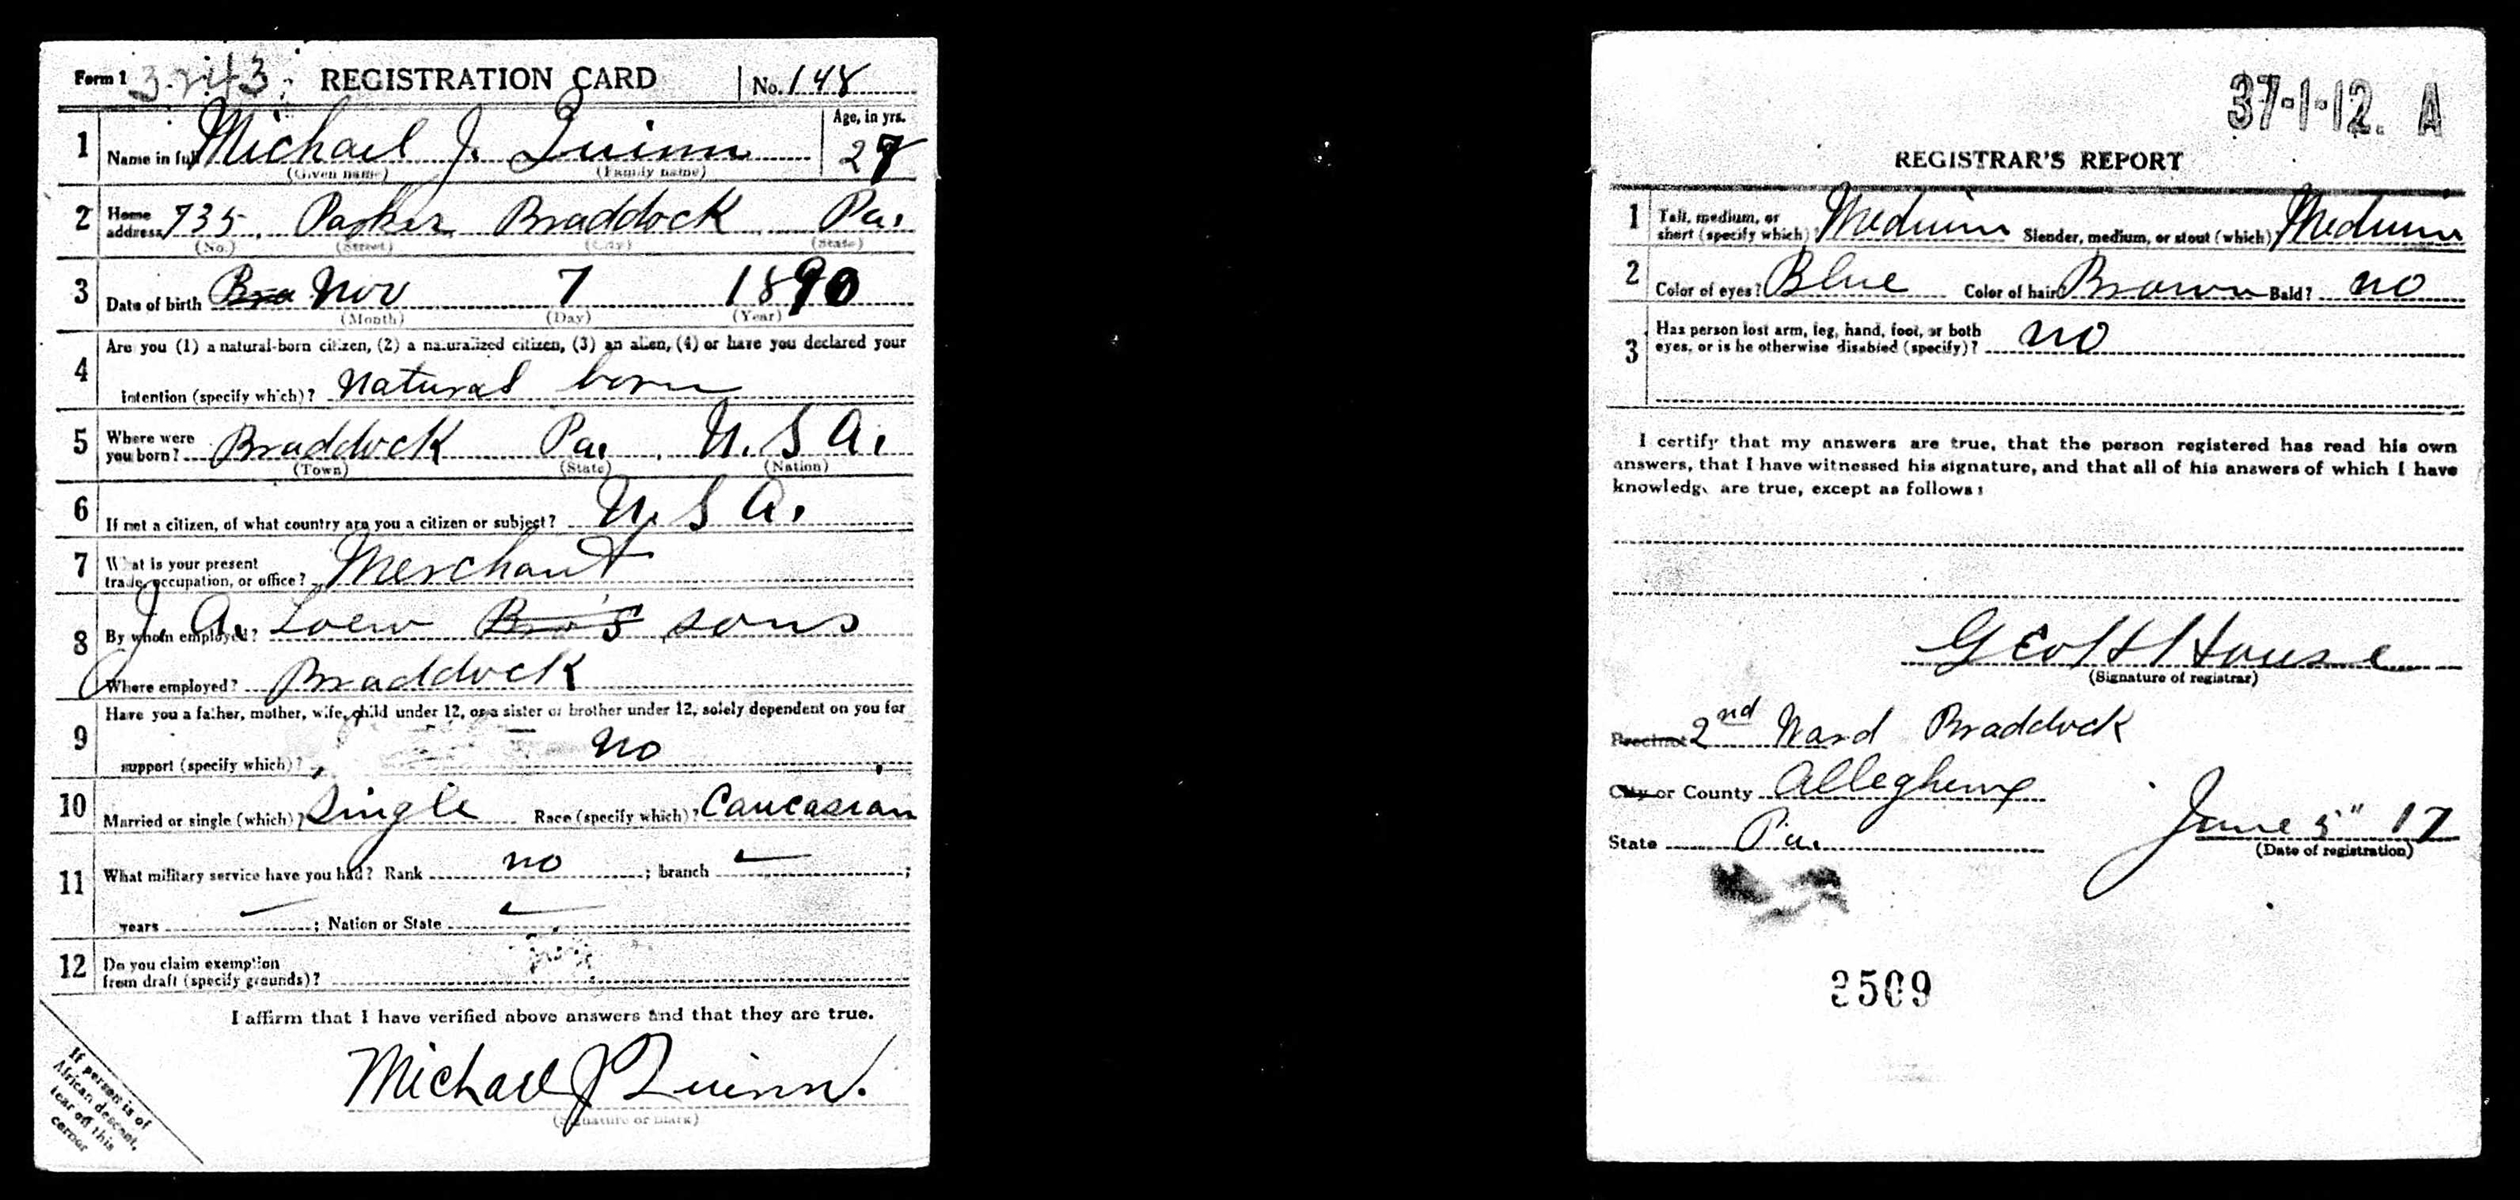 Form 1 3243 REGISTRATION CARD No. 148
1 Name in full Michael J. Quinn Age, in yrs.
(Given name) (Family name) 27
2 Home address 735 Parker Braddock Pa.
(No.) (Street) (City) (State)
3 Date of birth Nov 7 1890
(Month) (Day) (Year)
4 Are you (1) a natural-born citizen, (2) a naturalized citizen, (3) an alien, (4) or have you declared your
intention (specify which)? Natural born
5 Where were you born? Braddock Pa. U.S.A.
(Town) (State) (Nation)
6 If not a citizen, of what country are you a citizen or subject? U.S.A.
7 What is your present
trade, occupation, or office? Merchant
8 By whom employed? J. A. Loew Bro's sons
Where employed? Braddock
9 Have you a father, mother, wife, child under 12, or a sister or brother under 12, solely dependent on you for
support (specify which)? no
10 Married or single (which)? Single Race (specify which)? Caucasian
11 What military service have you had? Rank no ; branch ;
years ; Nation or State
12 Do you claim exemption
from draft (specify grounds)?
I affirm that I have verified above answers and that they are true.
Michael J Quinn.
(Signature or mark)
If person is of
African descent,
tear off this
corner
37-1-12. A
REGISTRAR'S REPORT
1 Tall, medium, or
short (specify which)? Medium Slender, medium, or stout (which)? Medium
2 Color of eyes? Blue Color of hair? Brown Bald? no
3 Has person lost arm, leg, hand, foot, or both
eyes, or is he otherwise disabled (specify)? no
I certify that my answers are true, that the person registered has read his own
answers, that I have witnessed his signature, and that all of his answers of which I have
knowledge are true, except as follows:
Geo H House
(Signature of registrar)
Precinct 2nd Ward Braddock
City or County Allegheny
State Pa. June 5" 17
(Date of registration)
2509